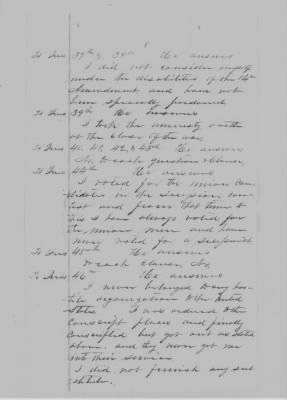 To Ques 37th & 38th He answers
I did not consider myself
under the disabilities of the 14th
Amendment, and have not
been specially pardoned
To Ques 39th He answers
I took the amnesty oath
at the close of the war
To Ques 40, 41, 42, & 43rd He answers
No, to each question & clause
To Ques 44th He answers
I voted for the union can
didates in the secession con
test and from that time to
this I have always voted for
the union men and have
never voted for a secessionist
To Ques 45th He answers
to each clause, No
To Ques 46th He answers
I never belonged to any hos
tile organization to the United
States. I was ordered to the
Conscript place and finally
Conscripted but got out as stated
above. and they never got me
into their service
I did not furnish any sub
stitute.